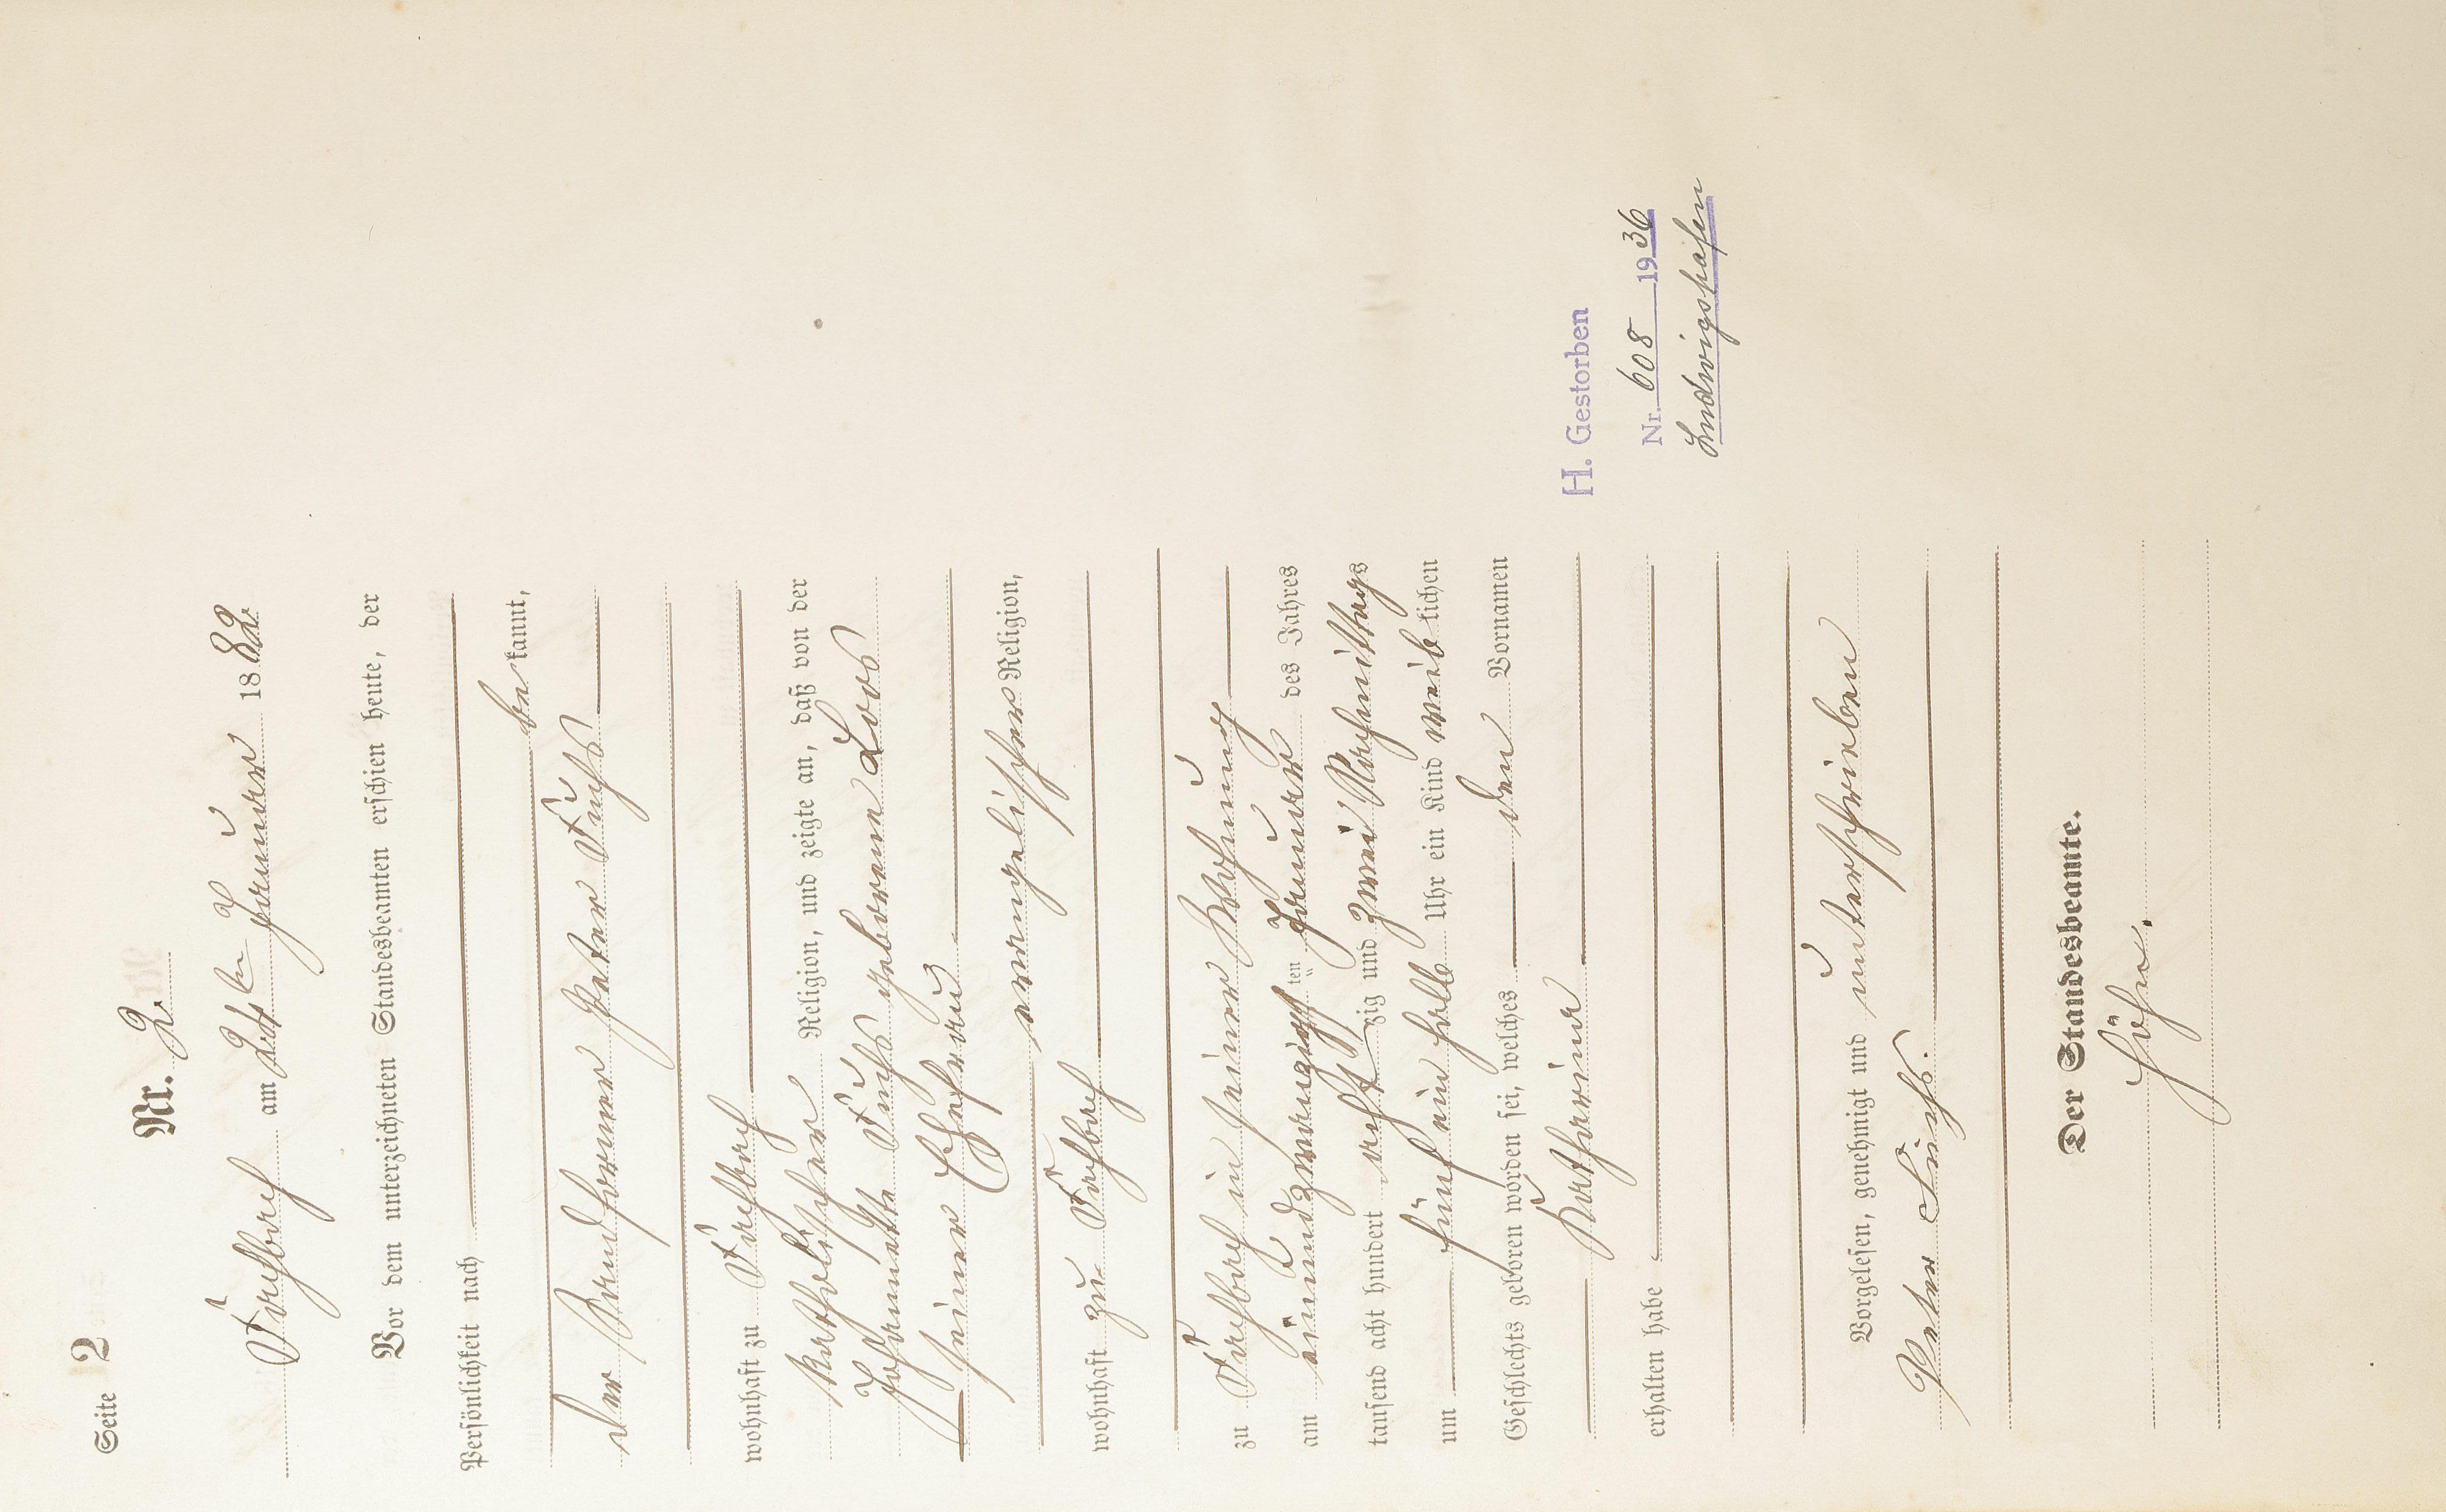 Seite 2
Nr. 2.
Vorbach am 24ten Januar 1882
Vor dem unterzeichneten Standesbeamten erschien heute, der
Persönlichkeit nach
bekannt,
der Peter Fuchs
wohnhaft zu
katholischer Religion, und zeigte an, daß von der
Fuchs geborene Loos
seiner Ehefrau
evangelischer Religion,
wohnhaft zu
zu in seiner Wohnung
am einundzwanzigsten Januar des Jahres
tausend acht hundert achtzig und zwei Nachmittags
um fünf ein halb Uhr ein Kind weiblichen
Geschlechts geboren worden sei, welches den Vornamen
Katharina
erhalten habe
H. Gestorben
Nr. 608 1936
Ludwigshafen
Vorgelesen, genehmigt und unterschrieben
Peter Fuchs.
Der Standesbeamte.
Höhn.